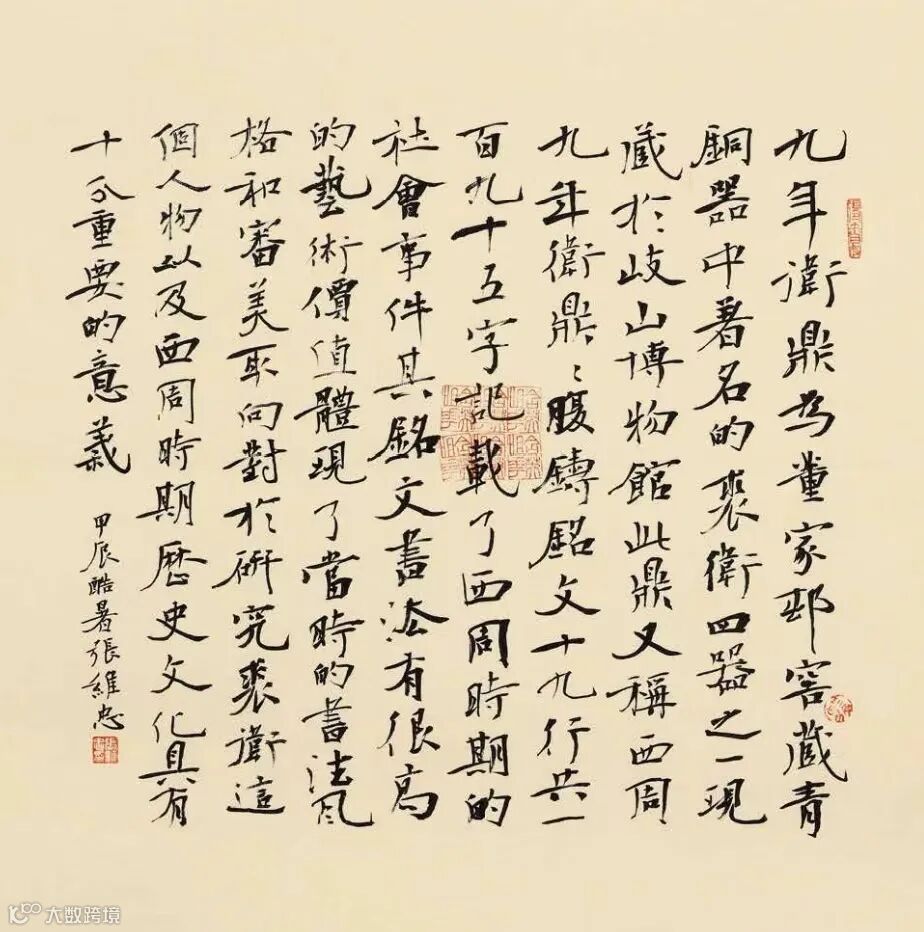 九年衛鼎為董家邨窖藏青
銅器中著名的裘衛四器之一現
藏於岐山博物館此鼎又稱西周
九年衛鼎〻腹鑄銘文十九行共一
百九十五字記載了西周時期的
社會事件其銘文書法有很高
的藝術價值體現了當時的書法風
格和審美取向對於研究裘衛這
個人物以及西周時期歷史文化具有
十分重要的意義
甲辰酷暑張維忠
大数跨境